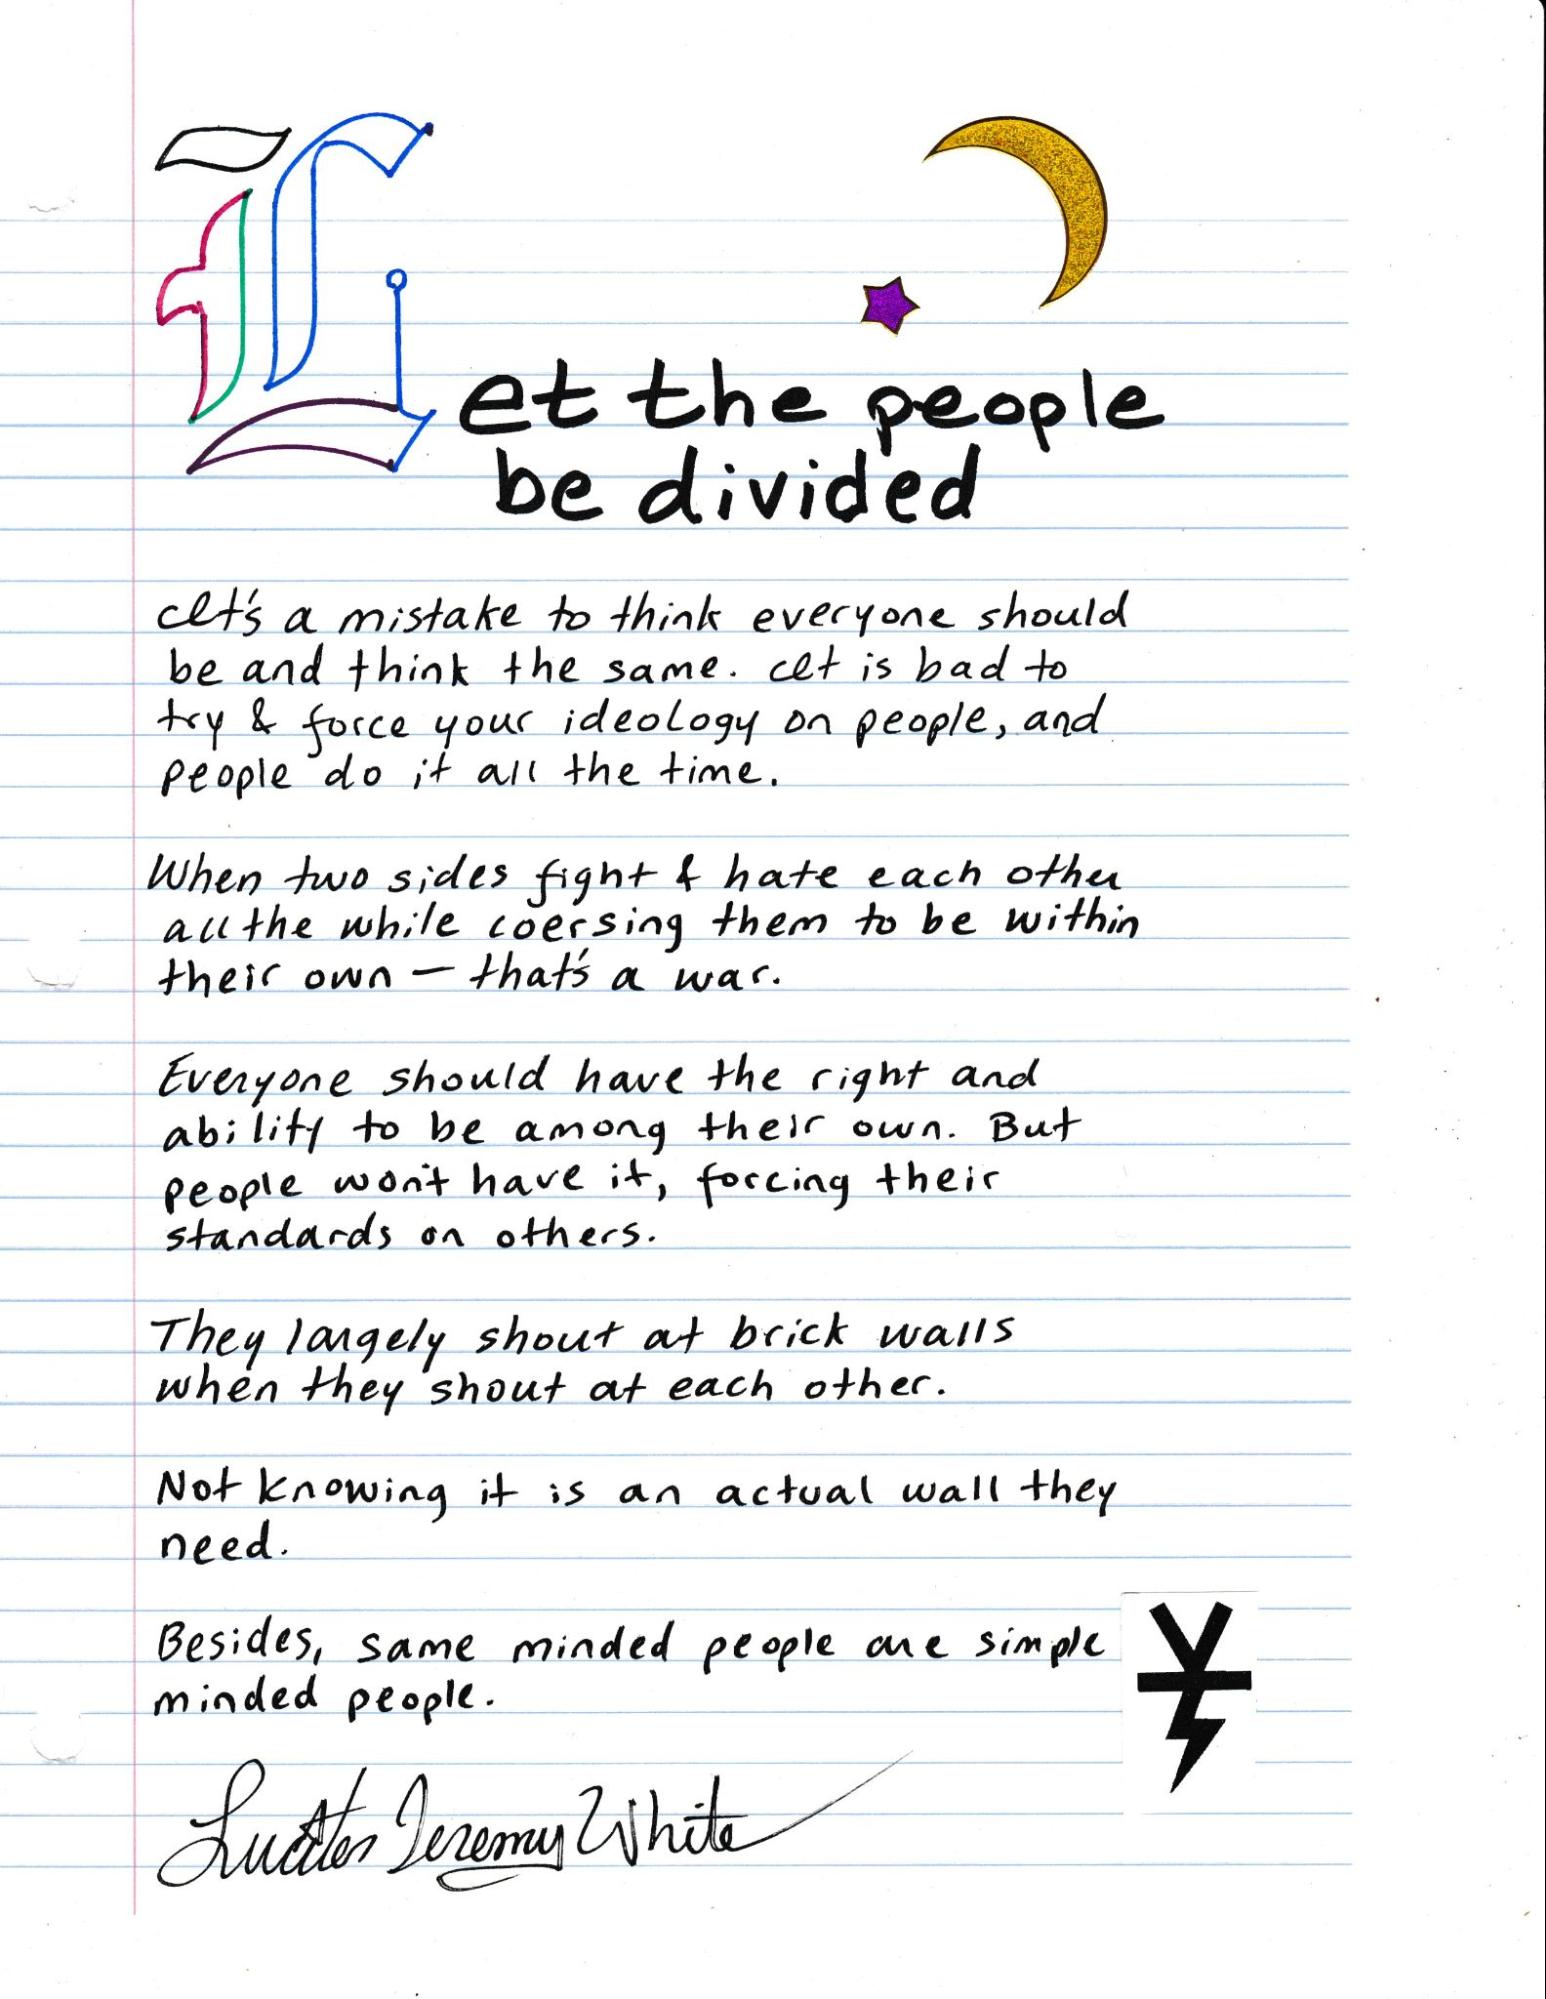 Let the people
be divided
It's a mistake to think everyone should
be and think the same. It is bad to
try & force your ideology on people, and
people do it all the time.
When two sides fight & hate each other
all the while coersing them to be within
their own — that's a war.
Everyone should have the right and
ability to be among their own. But
people won't have it, forcing their
standards on others.
They largely shout at brick walls
when they shout at each other.
Not knowing it is an actual wall they
need.
Besides, same minded people are simple
minded people.
Jeremy White